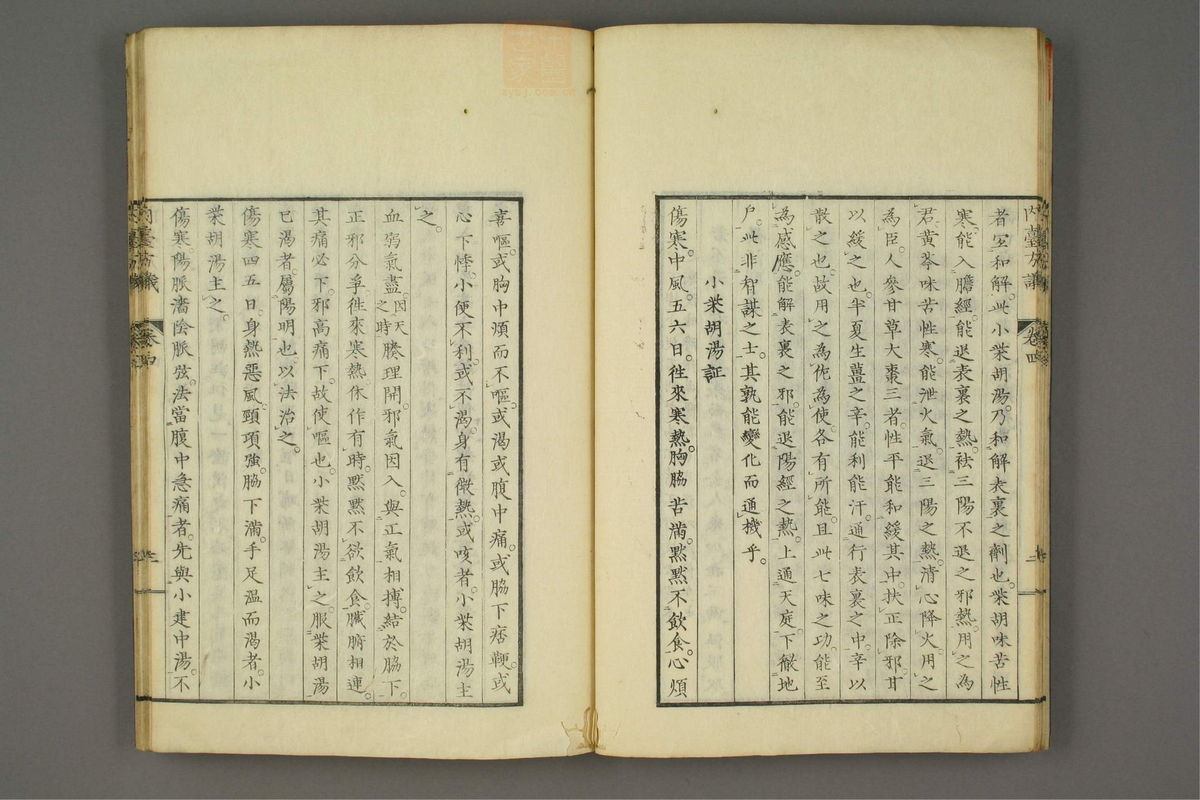 者宜和解此小柴胡湯乃和解表裏之劑也柴胡味苦性
寒能入膽經能退表裏之熱祛三陽不退之邪熱用之為
君黃芩味苦性寒能泄火氣退三陽之熱清心降火用之
為臣人參甘草大棗三者性平能和緩其中扶正除邪甘
以緩之也半夏生薑之辛能利能汗通行表裏之中辛以
散之也故用之為佐為使各有所能且此七味之功能至
為感應能解表裏之邪能退陽經之熱上通天庭下徹地
戶此非智謀之士其孰能變化而通機乎
小柴胡湯証
傷寒中風五六日徃來寒熱胸脇苦滿黙黙不飲食心煩
喜嘔或胸中煩而不嘔或渴或腹中痛或脇下痞鞕或
心下悸小便不利或不渴身有微熱或咳者小柴胡湯主
之
血弱氣盡因天之時腠理開邪氣因入與正氣相搏結於脇下
正邪分爭徃來寒熱休作有時黙黙不欲飲食臟腑相連
其痛必下邪高痛下故使嘔也小柴胡湯主之服柴胡湯
已渴者屬陽明也以法治之
傷寒四五日身熱惡風頸項強脇下滿手足溫而渴者小
柴胡湯主之
傷寒陽脈濇陰脈弦法當腹中急痛者先與小建中湯不
內臺方議
卷四